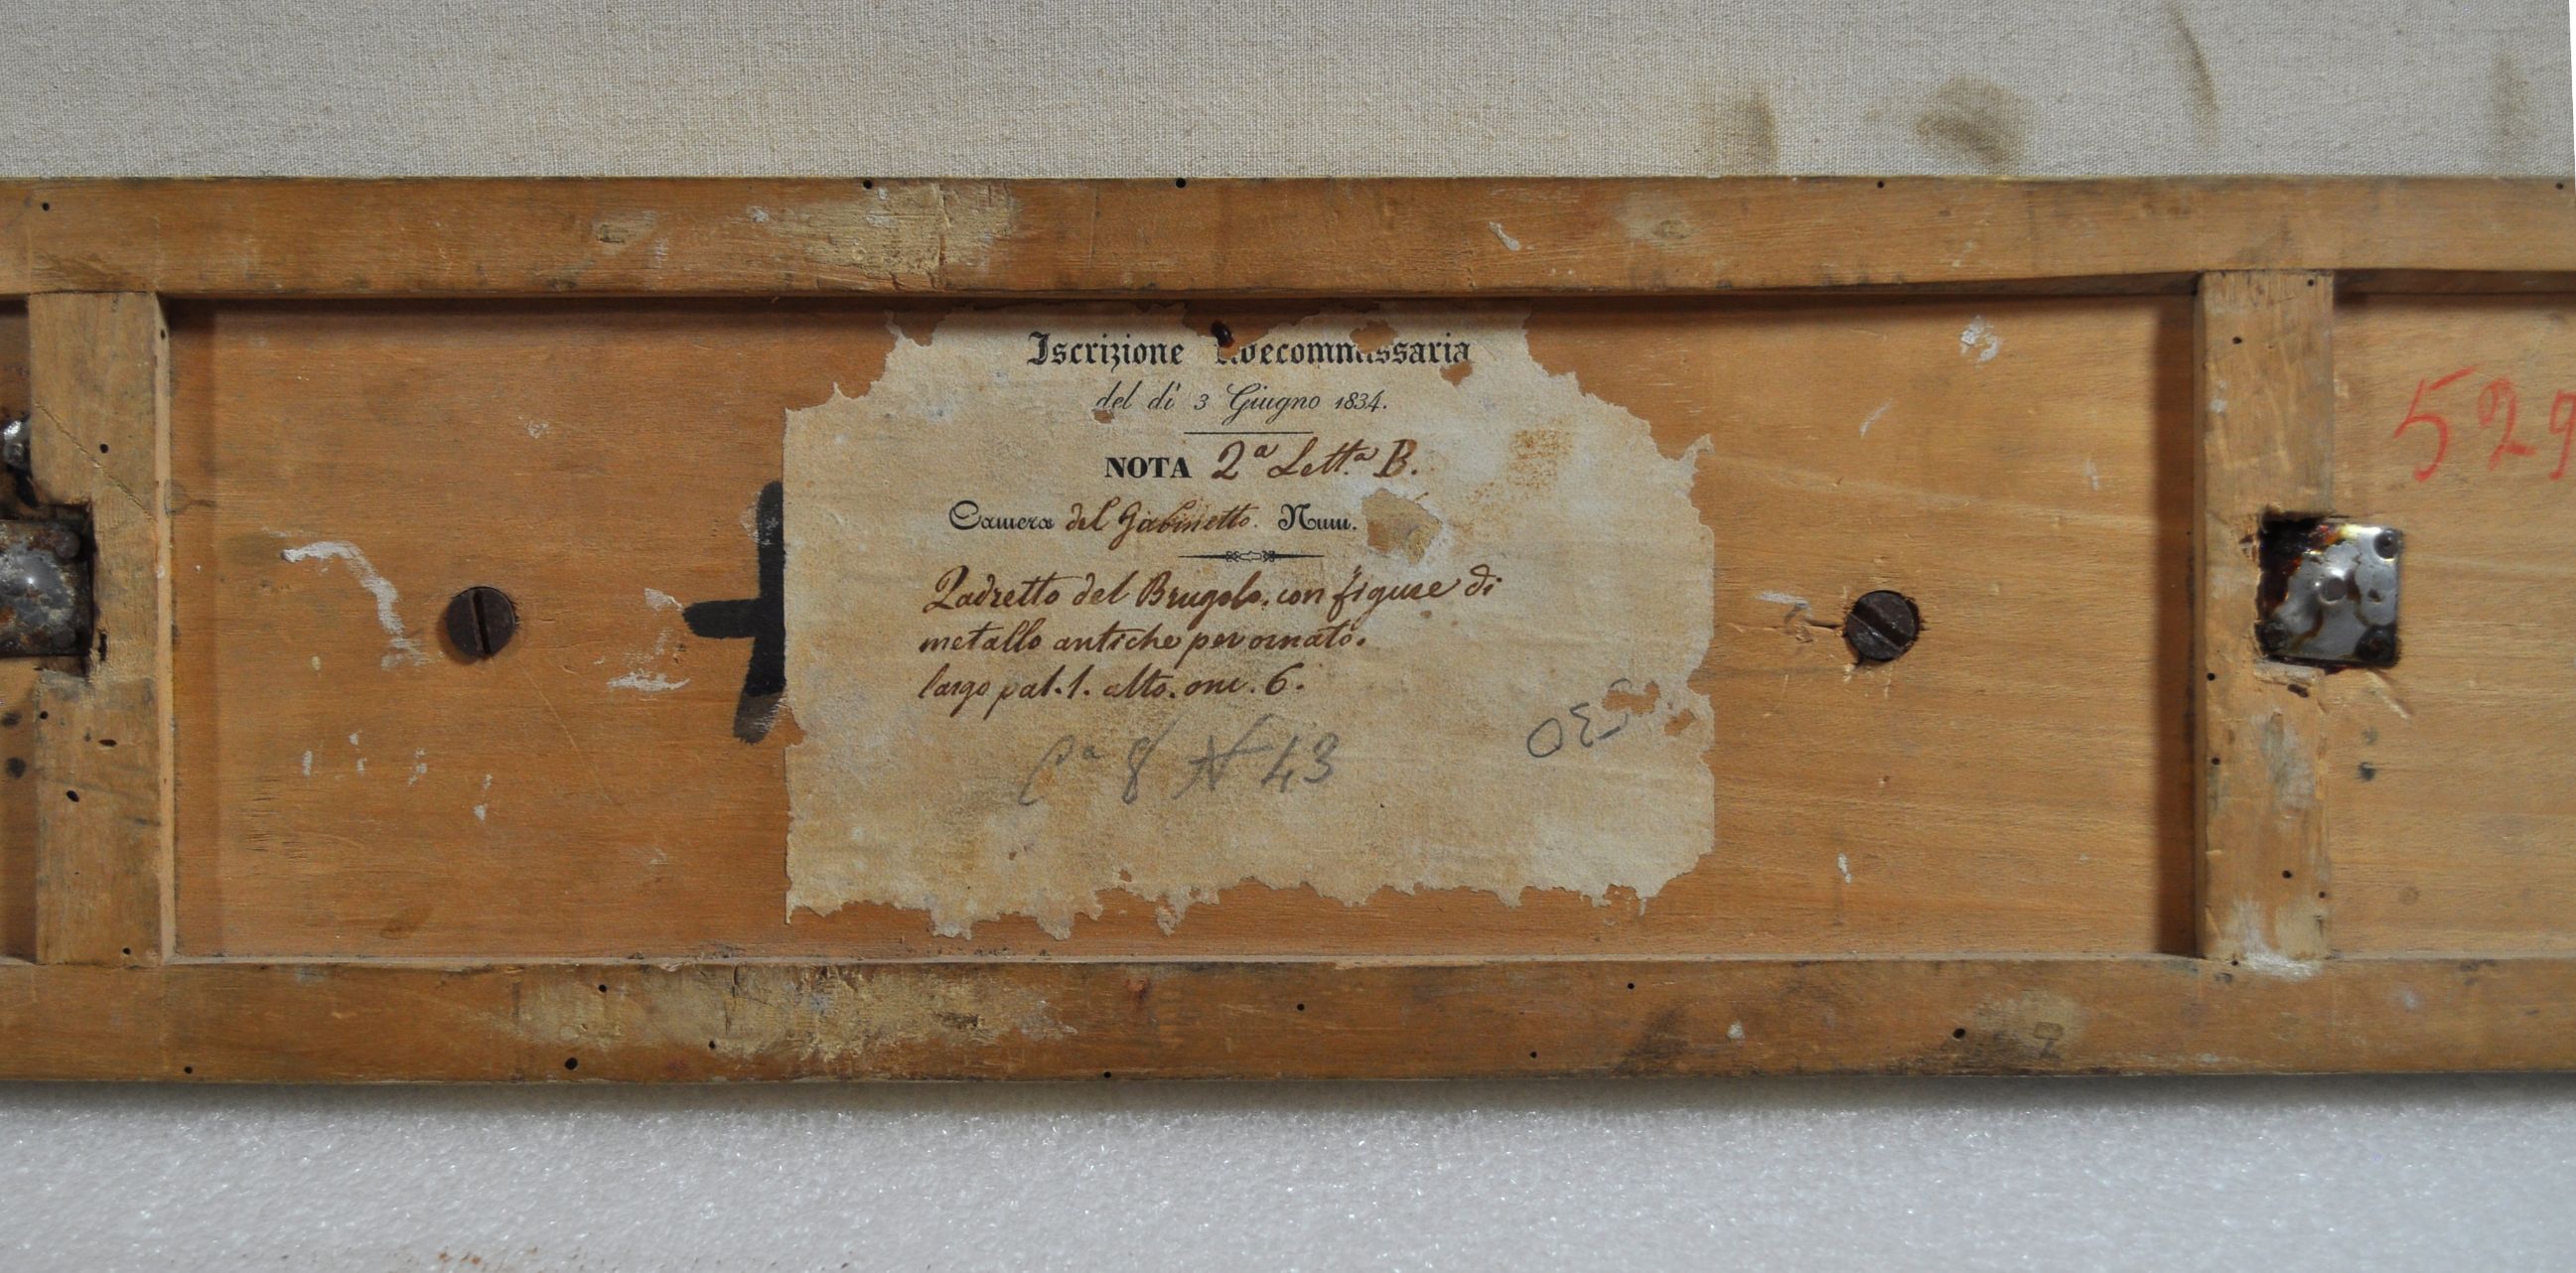 Iscrizione
del dì 3 Giugno 1834.
NOTA 2ª Lett.ª B.
Camera del Gabinetto. Num.
Qadretto del Brugolo, con figure di
metallo antiche per ornato.
largo pal. 1. alto. onc. 6.
8 N 43
529